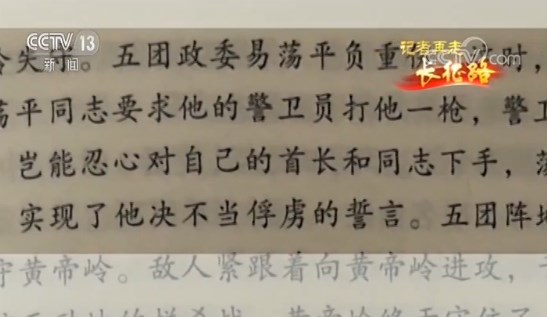 CCTV 13
新闻
记者再走
长征路
失陷。五团政委易荡平负重伤。这时,
荡平同志要求他的警卫员打他一枪,警卫
岂能忍心对自己的首长和同志下手,荡
实现了他决不当俘虏的誓言。五团阵地
守黄帝岭。敌人紧跟着向黄帝岭进攻,